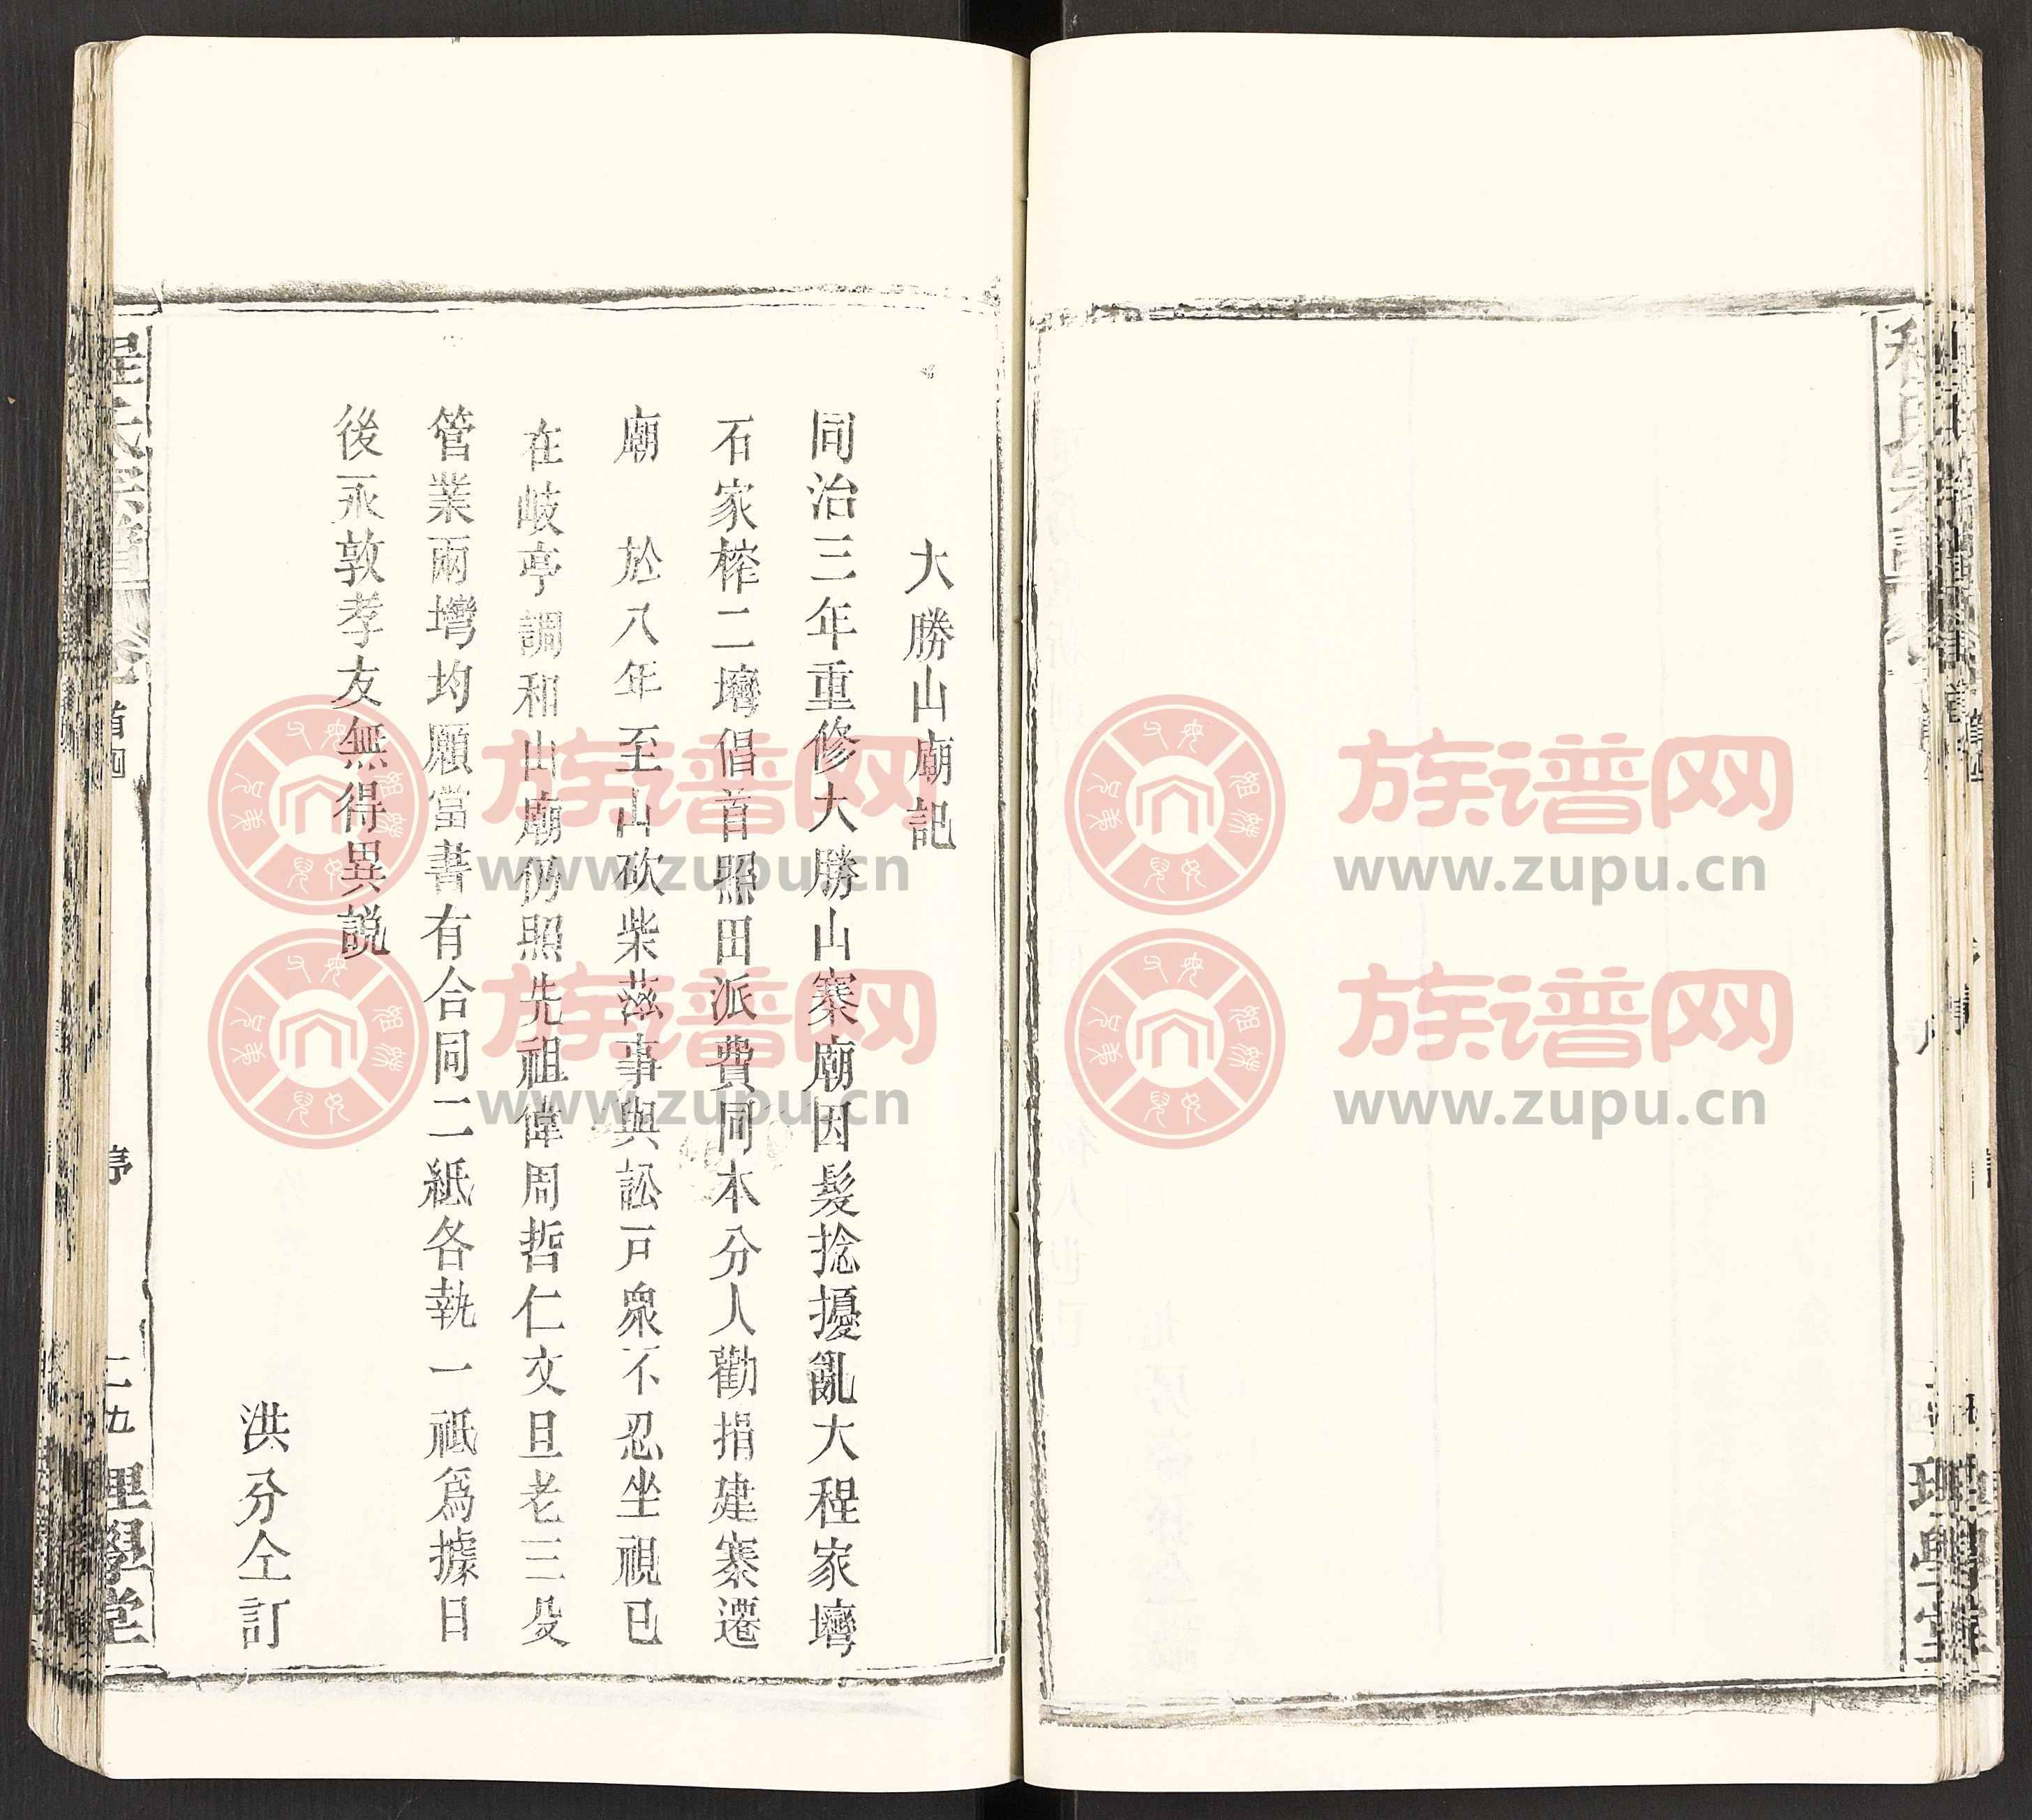 大勝山廟記
同治三年重修大勝山寨廟因髮捻擾亂大程家塆
石家榨二塆倡首照田派費同本分人勸捐建寨遷
廟　於八年至山砍柴茲事與訟戸衆不忍坐視已
在岐亭調和山廟仍照先祖偉周哲仁文旦老三殳
管業兩塆均願當書有合同二紙各執一祗爲據日
後永敦孝友無得異説
洪分仝訂
程氏宗譜
卷
首四
序
二九
理學堂
族谱网
www.zupu.cn
族谱网
www.zupu.cn
族谱网
www.zupu.cn
族谱网
www.zupu.cn